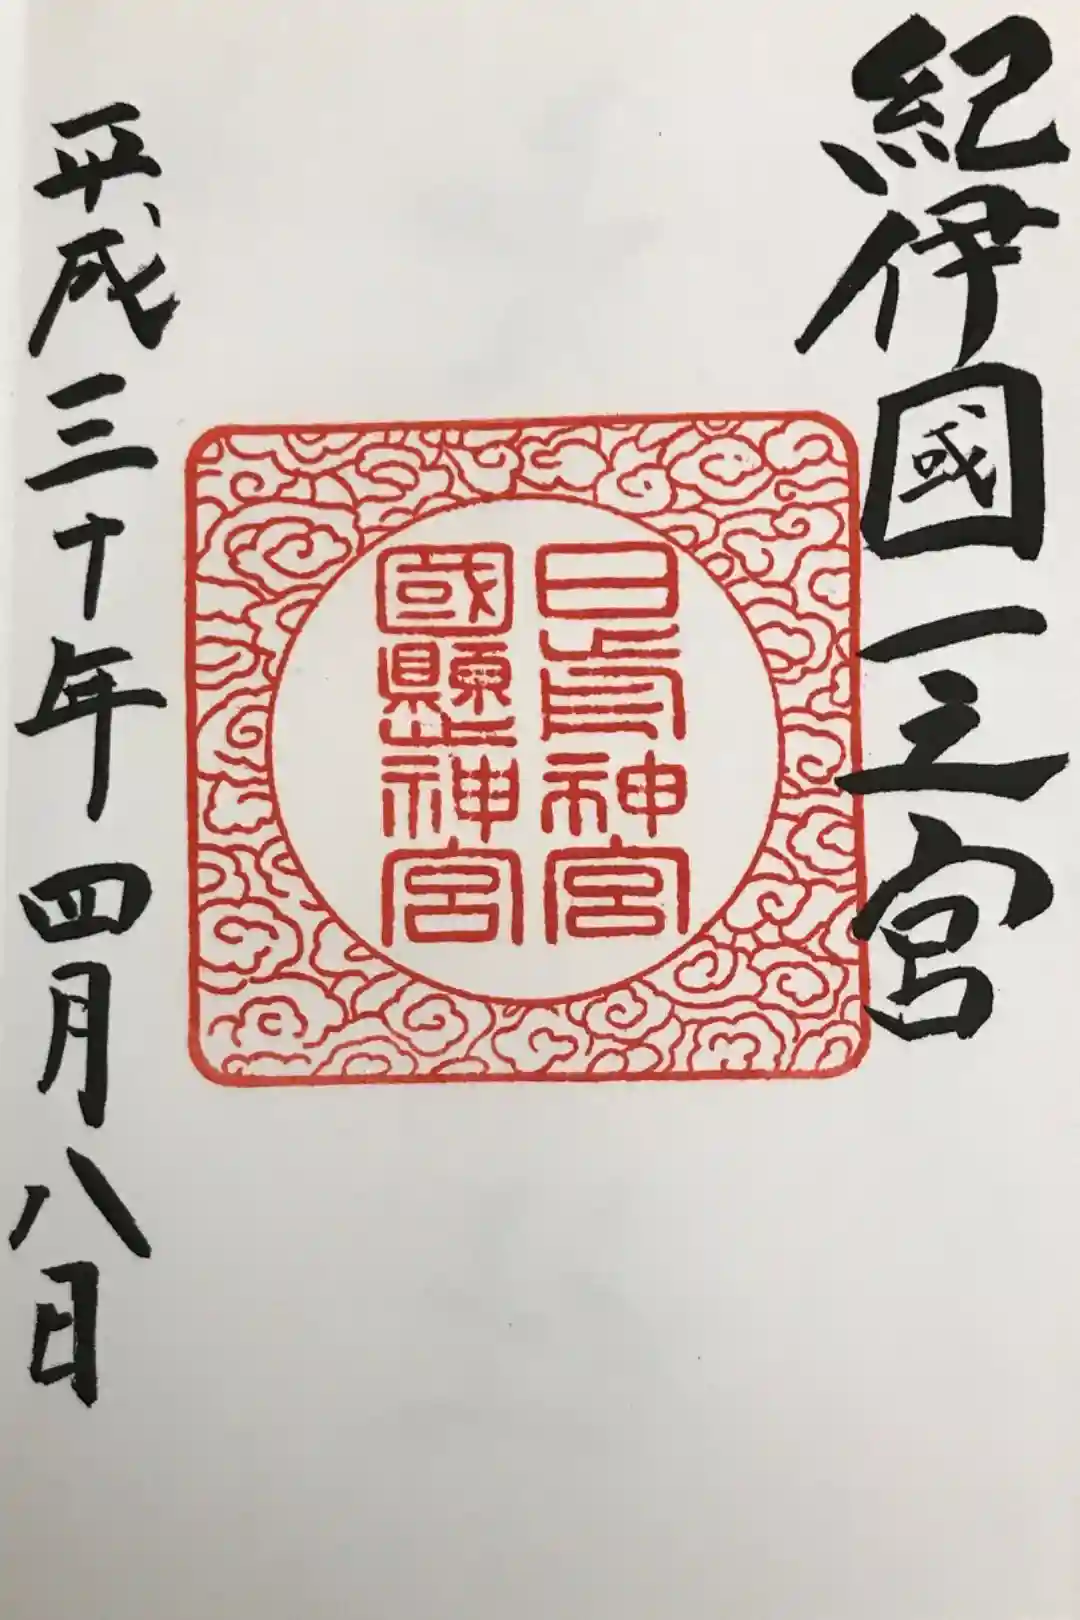 紀伊國一之宮
日前神宮
國懸神宮
平成三十年四月八日